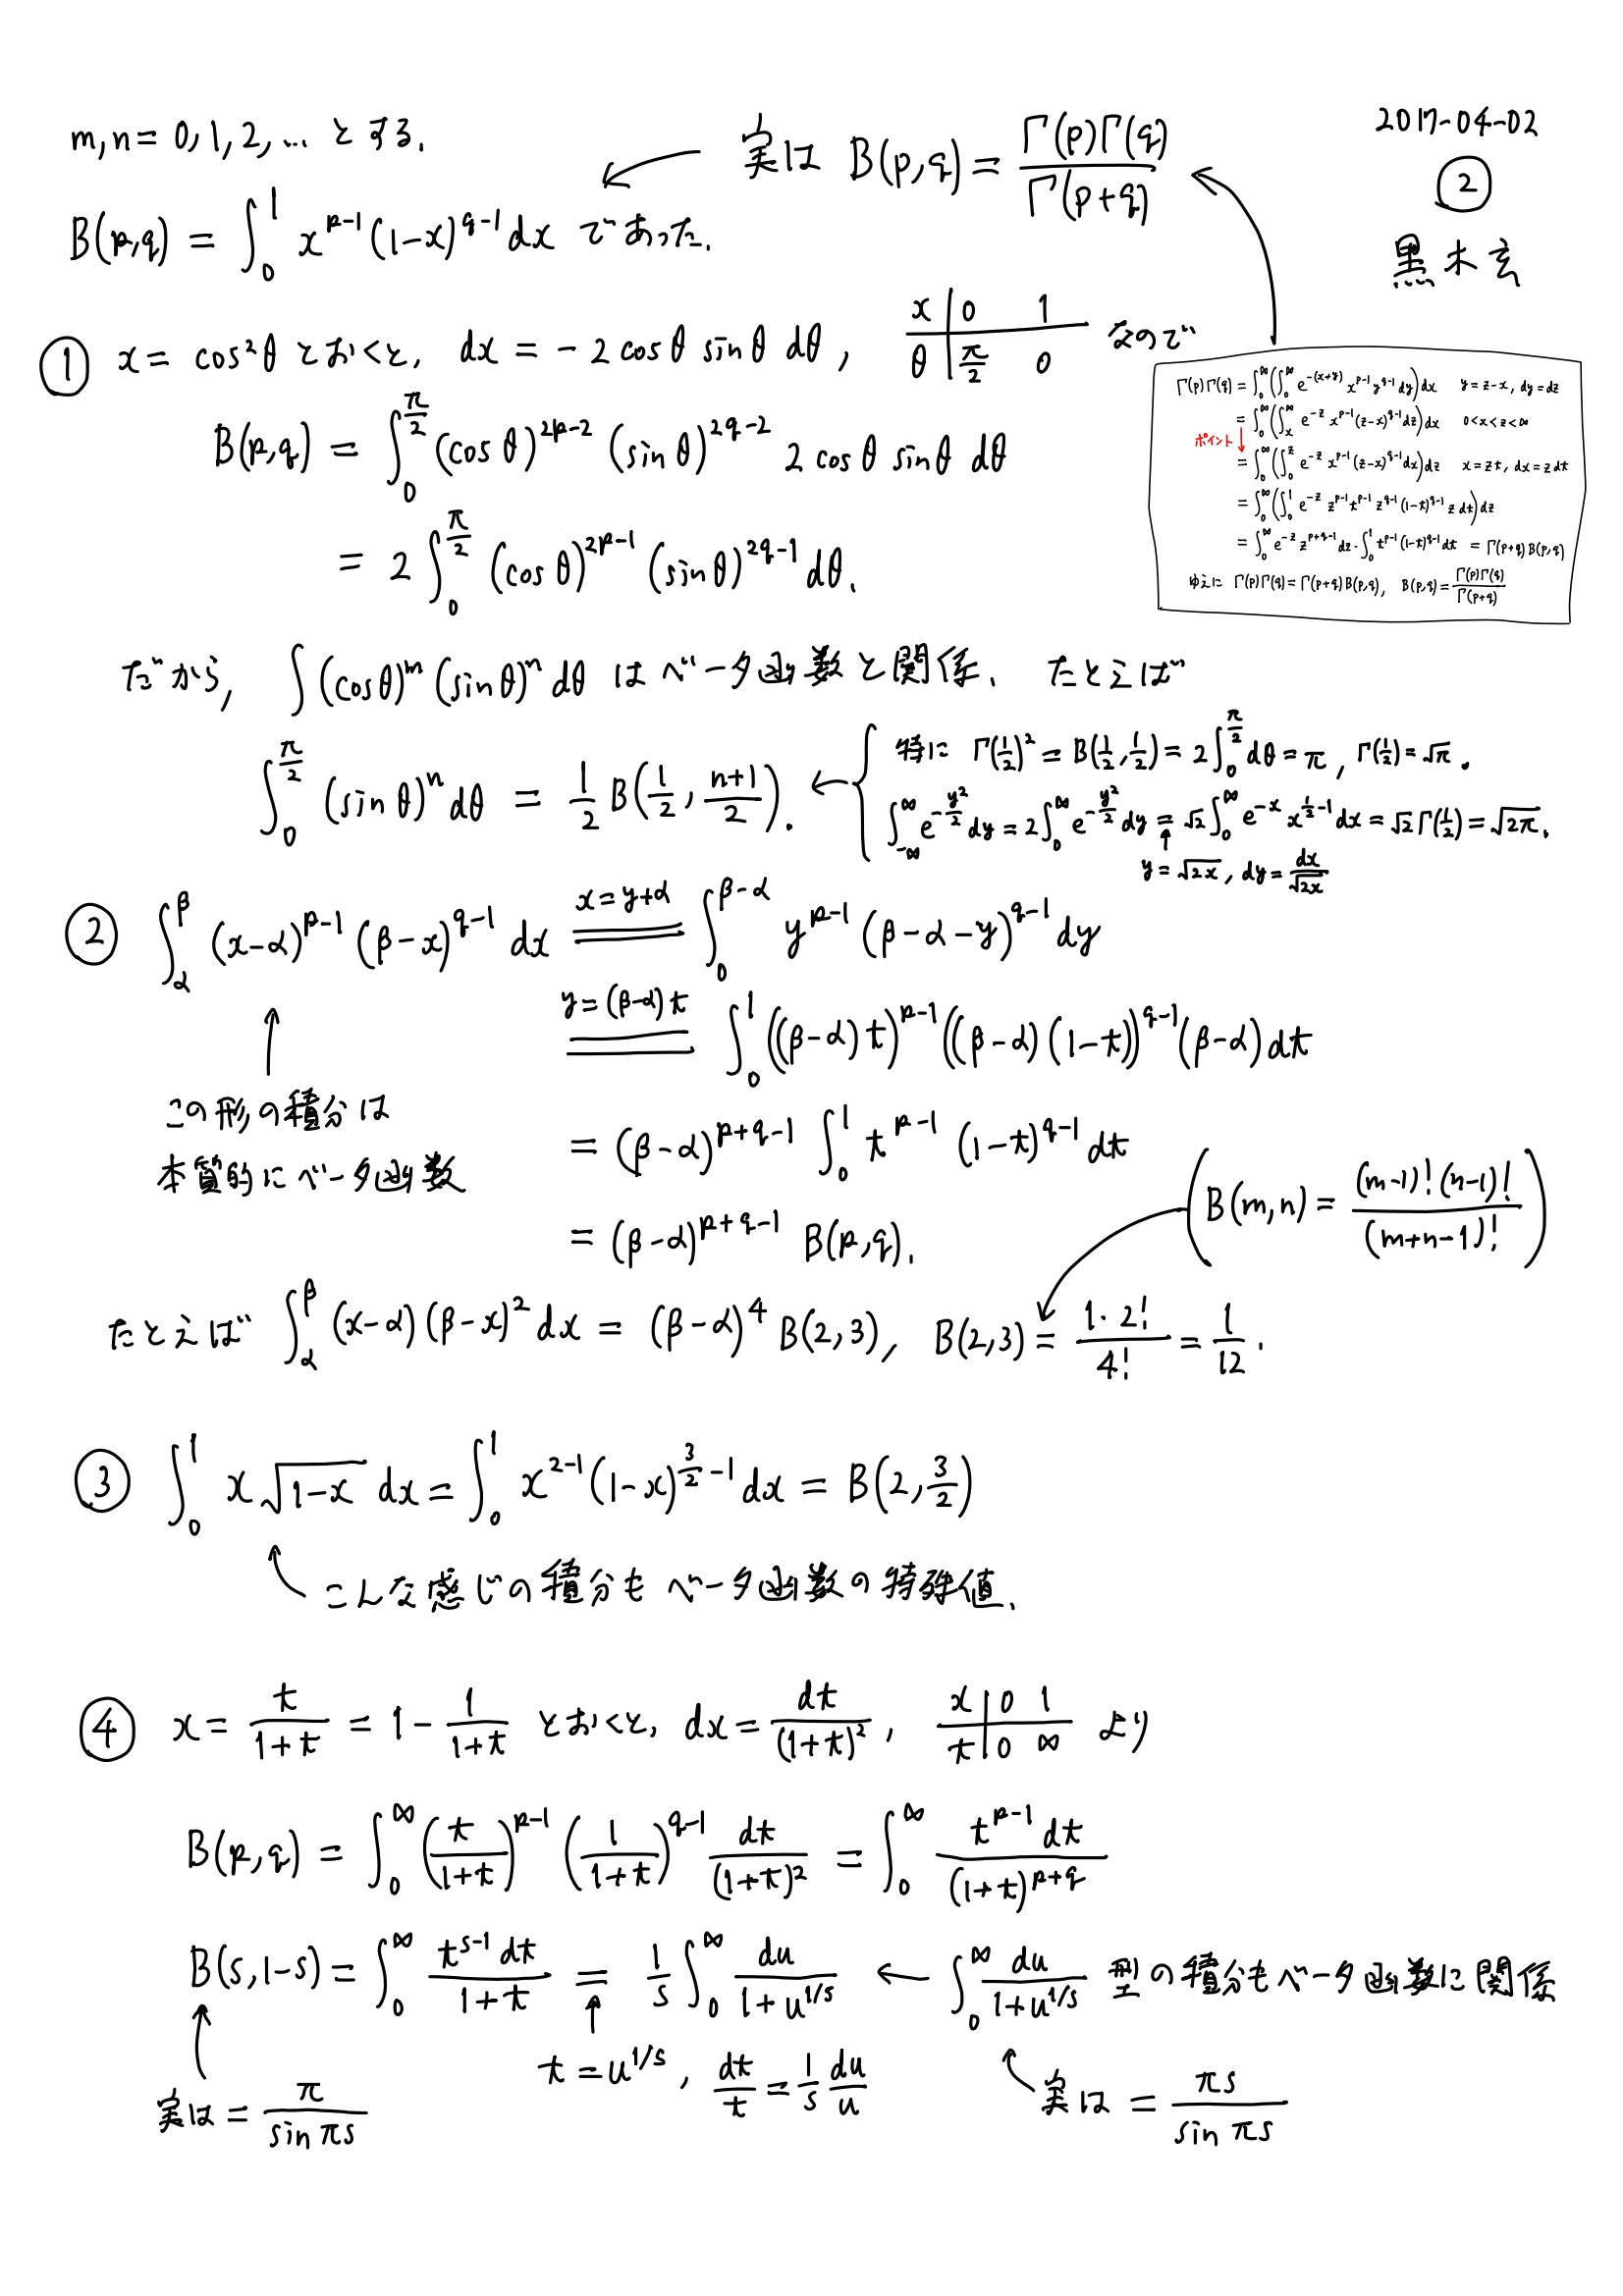 2017-04-02
②
黒木玄
m,n = 0,1,2,… とする.
実は B(p,q) = Γ(p)Γ(q)/Γ(p+q)
B(p,q) = ∫_0^1 x^{p-1} (1-x)^{q-1} dx であった.
① x = cos²θ とおくと, dx = -2 cosθ sinθ dθ, x | 0 1 なので
θ | π/2 0
B(p,q) = ∫_0^{π/2} (cosθ)^{2p-2} (sinθ)^{2q-2} 2 cosθ sinθ dθ
= 2 ∫_0^{π/2} (cosθ)^{2p-1} (sinθ)^{2q-1} dθ.
Γ(p)Γ(q) = ∫_0^∞ (∫_0^∞ e^{-(x+y)} x^{p-1} y^{q-1} dy) dx y = z-x, dy = dz
= ∫_0^∞ (∫_x^∞ e^{-z} x^{p-1} (z-x)^{q-1} dz) dx 0<x<z<∞
ポイント ↓
= ∫_0^∞ (∫_0^z e^{-z} x^{p-1} (z-x)^{q-1} dx) dz x = zt, dx = z dt
= ∫_0^∞ (∫_0^1 e^{-z} z^{p-1} t^{p-1} z^{q-1} (1-t)^{q-1} z dt) dz
= ∫_0^∞ e^{-z} z^{p+q-1} dz · ∫_0^1 t^{p-1} (1-t)^{q-1} dt = Γ(p+q) B(p,q)
ゆえに Γ(p)Γ(q) = Γ(p+q) B(p,q), B(p,q) = Γ(p)Γ(q)/Γ(p+q)
だから, ∫ (cosθ)^m (sinθ)^n dθ はベータ函数と関係. たとえば
∫_0^{π/2} (sinθ)^n dθ = 1/2 B(1/2, (n+1)/2). ←
特に Γ(1/2)² = B(1/2, 1/2) = 2 ∫_0^{π/2} dθ = π, Γ(1/2) = √π.
∫_{-∞}^∞ e^{-y²/2} dy = 2 ∫_0^∞ e^{-y²/2} dy = √2 ∫_0^∞ e^{-x} x^{1/2-1} dx = √2 Γ(1/2) = √(2π).
↑ y = √(2x), dy = dx/√(2x)
② ∫_α^β (x-α)^{p-1} (β-x)^{q-1} dx = (x=y+α) ∫_0^{β-α} y^{p-1} (β-α-y)^{q-1} dy
= (y=(β-α)t) ∫_0^1 ((β-α)t)^{p-1} ((β-α)(1-t))^{q-1} (β-α) dt
↑
この形の積分は
本質的にベータ函数
= (β-α)^{p+q-1} ∫_0^1 t^{p-1} (1-t)^{q-1} dt
= (β-α)^{p+q-1} B(p,q).
(B(m,n) = (m-1)!(n-1)!/(m+n-1)!)
たとえば ∫_α^β (x-α)(β-x)² dx = (β-α)^4 B(2,3), B(2,3) = 1·2!/4! = 1/12.
③ ∫_0^1 x√(1-x) dx = ∫_0^1 x^{2-1} (1-x)^{3/2-1} dx = B(2, 3/2)
こんな感じの積分もベータ函数の特殊値.
④ x = t/(1+t) = 1 - 1/(1+t) とおくと, dx = dt/(1+t)², x | 0 1 より
t | 0 ∞
B(p,q) = ∫_0^∞ (t/(1+t))^{p-1} (1/(1+t))^{q-1} dt/(1+t)² = ∫_0^∞ t^{p-1} dt/(1+t)^{p+q}
B(s,1-s) = ∫_0^∞ t^{s-1} dt/(1+t) = 1/s ∫_0^∞ du/(1+u^{1/s}) ← ∫_0^∞ du/(1+u^{1/s}) 型の積分もベータ函数に関係
↑ t = u^{1/s}, dt/t = 1/s du/u
実は = π/sin πs
実は = πs/sin πs